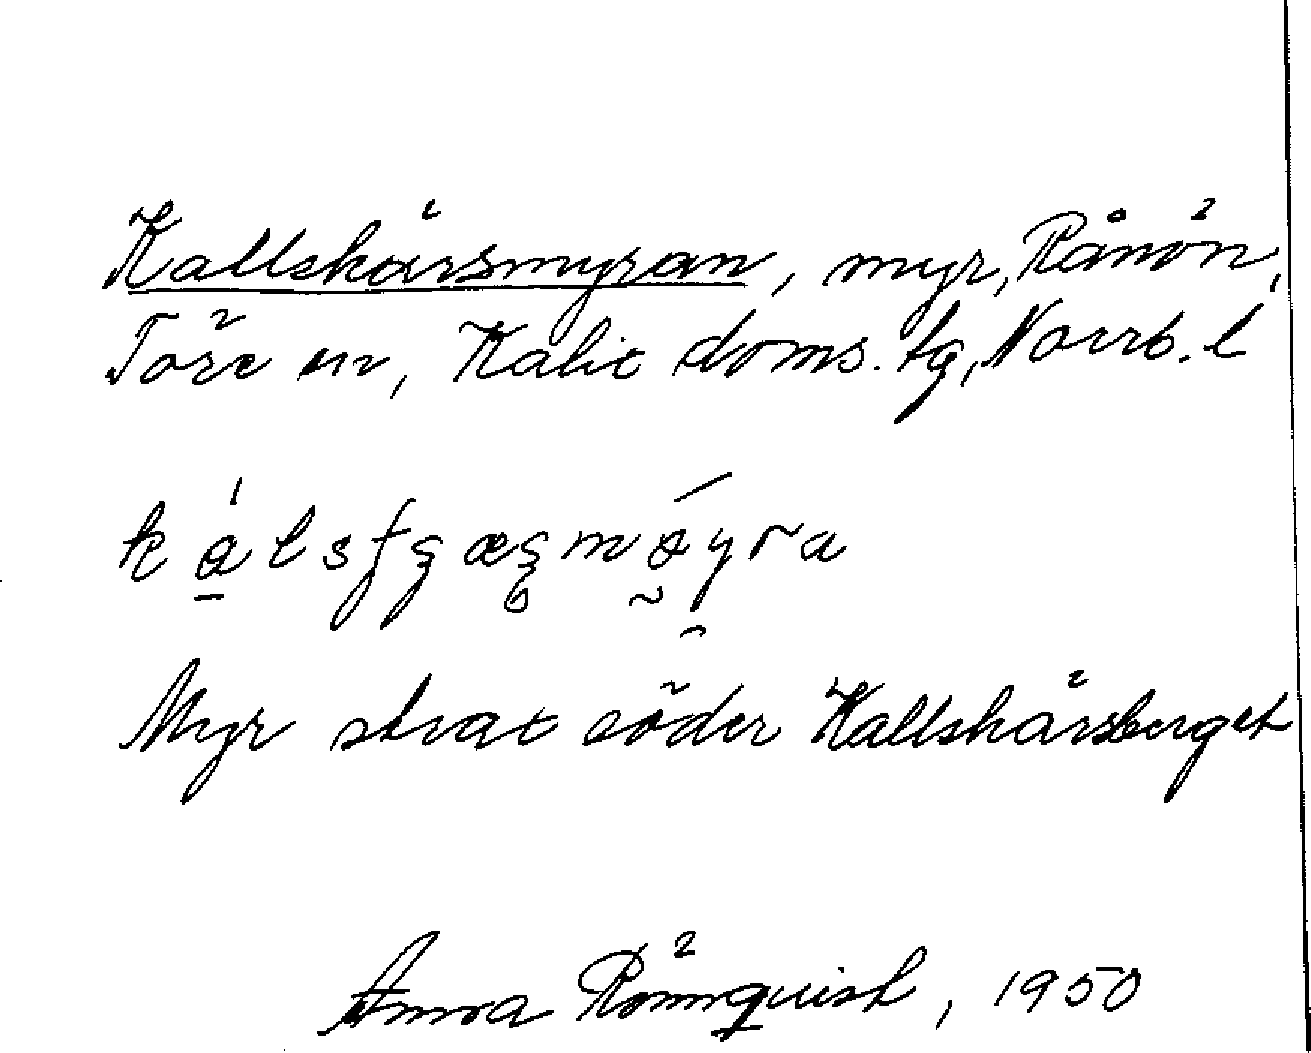 Kallskärsmyran, myr, Rånön,
Töre sn, Kalix doms. tg, Norrb. l

Myr strax söder Kallskärsberget
Anna Rönnquist, 1950